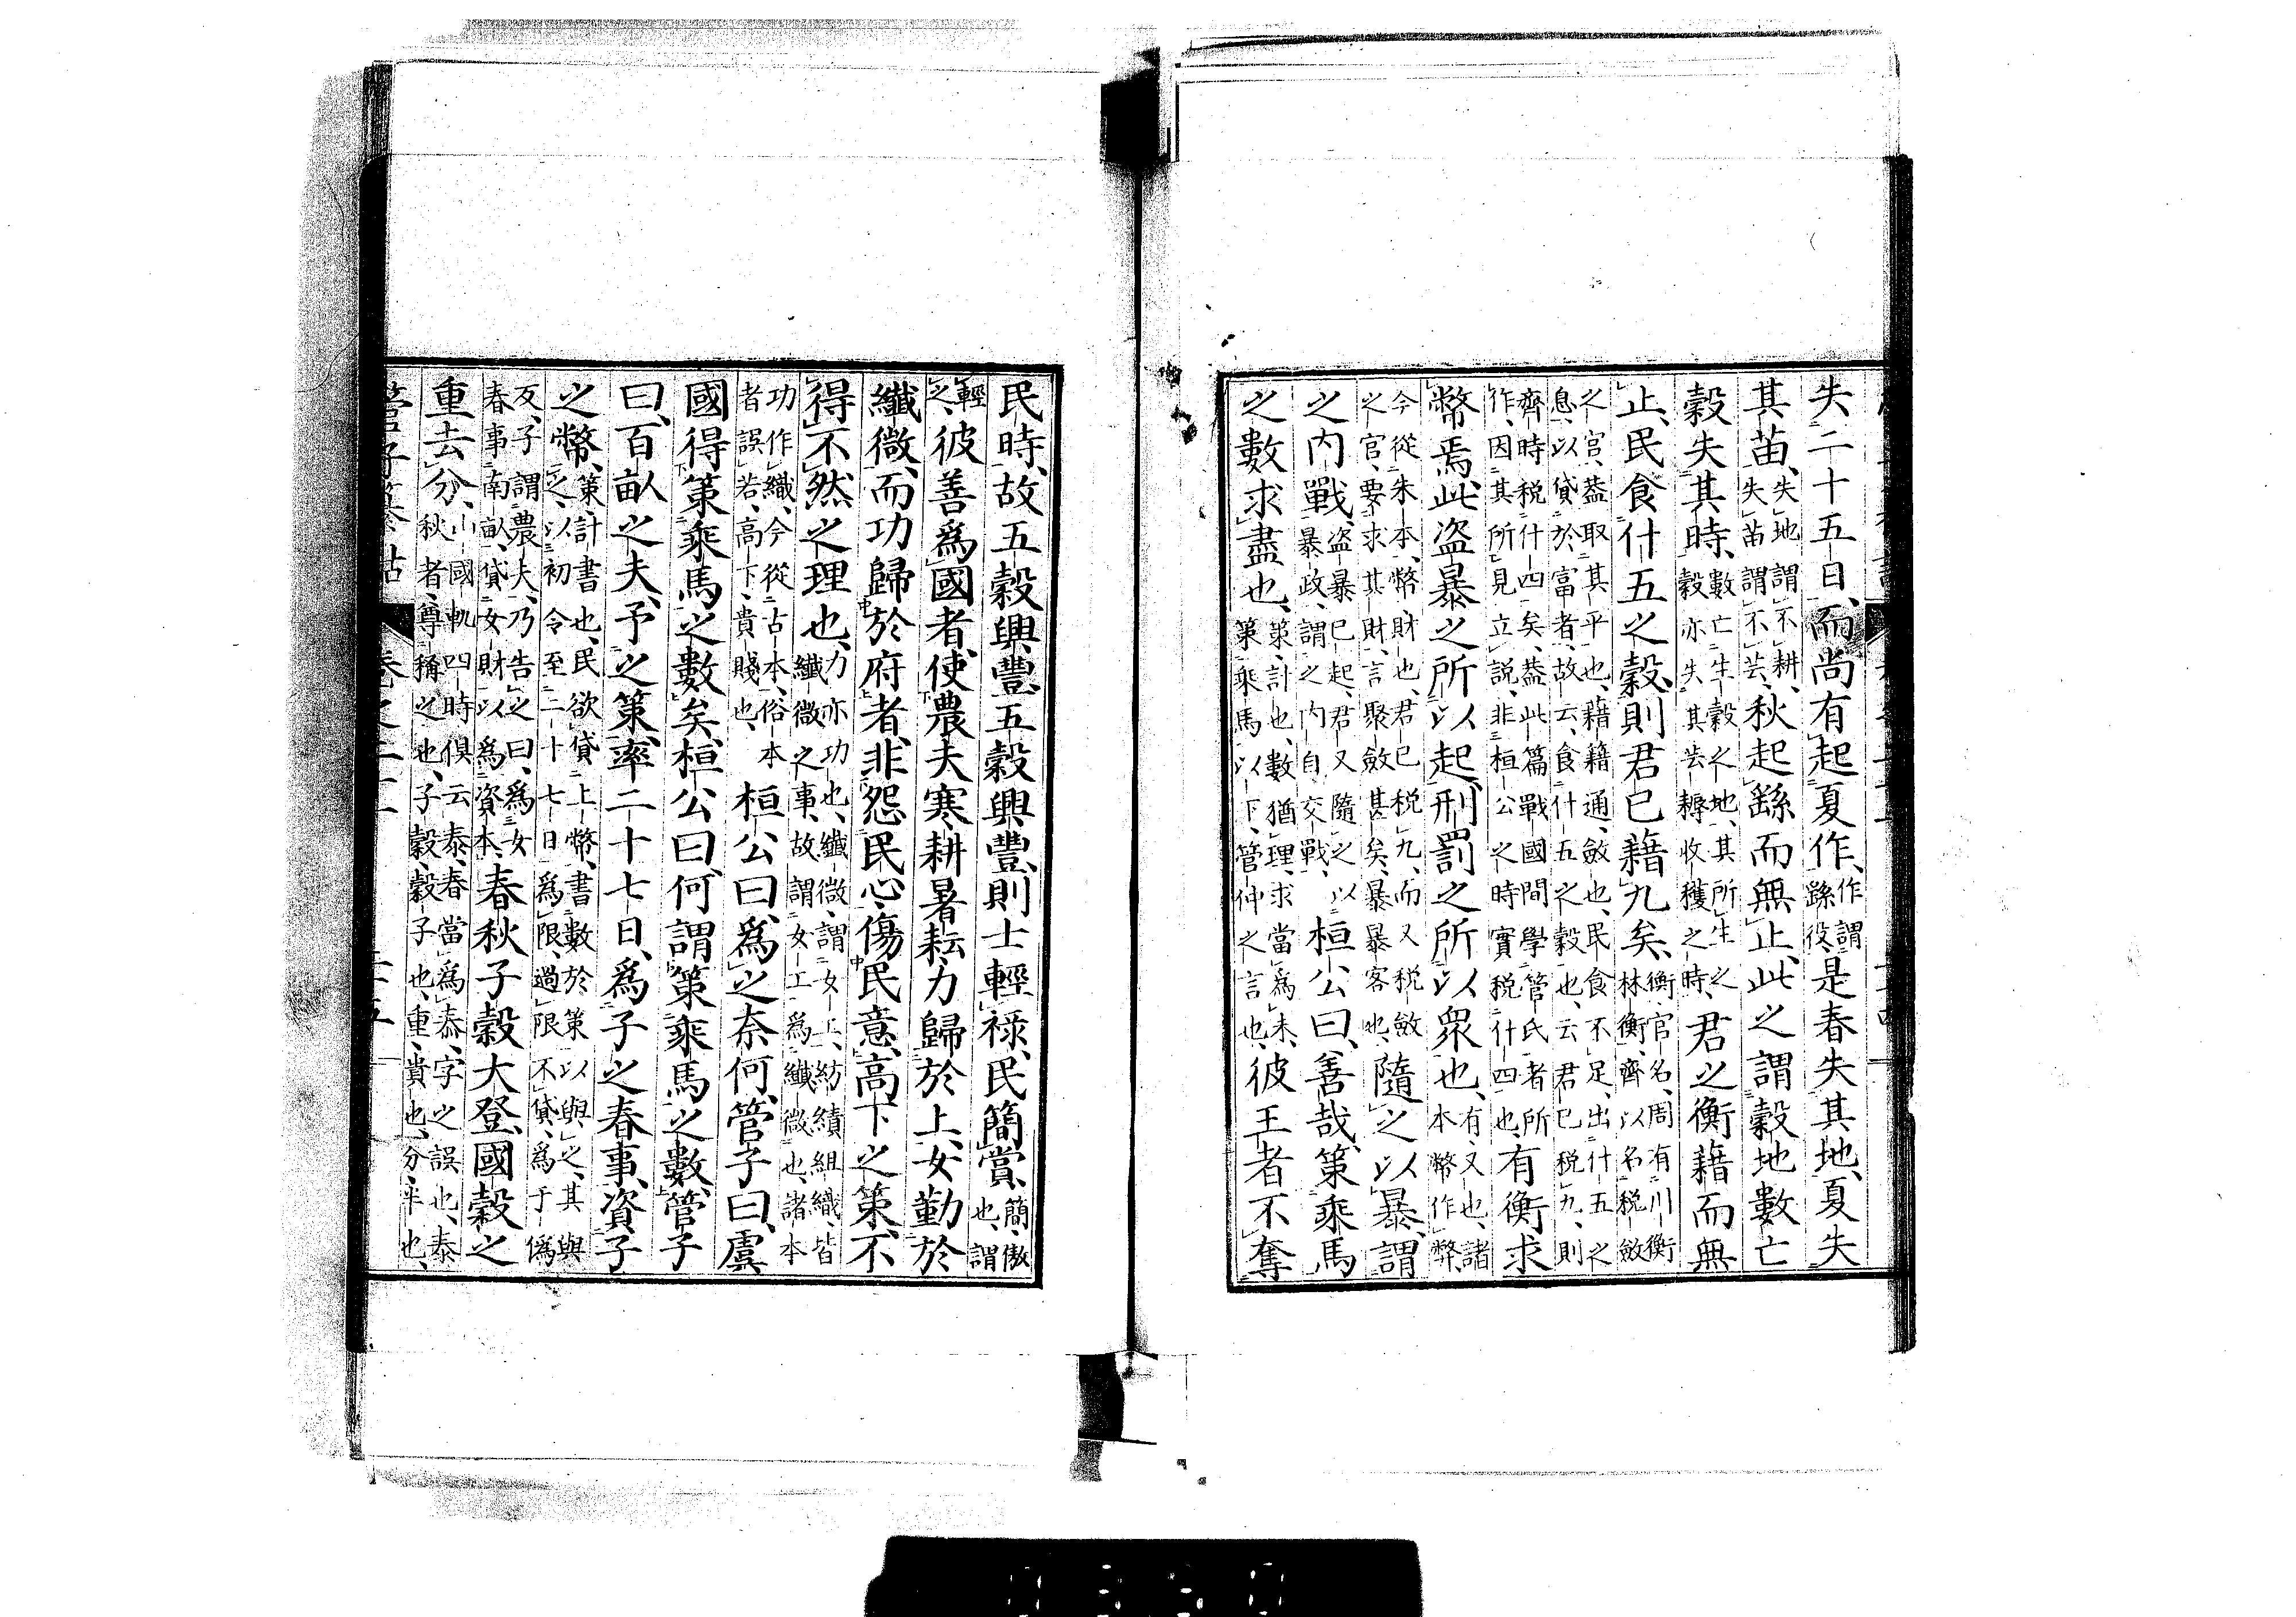 失二十五日、而尚有起夏作、作謂繇役、是春失其地、夏失
其苗、失地謂不耕、失苗謂不芸、秋起繇而無止、此之謂穀地數亡
穀失其時、數亡生穀之地、其所生之穀亦失其芸耨收穫之時、君之衡藉而無
止、民食什五之穀、則君已藉九矣、衡、官名、周有川衡林衡、齊以名税斂
之官、葢取其平也、藉籍通、斂也、民食不足、出什五之息、以貸於富者、故云食什五之穀也、云君已税九、則
齊時税什四矣、葢此篇戰國間學管氏者所作、因其所見立説、非桓公之時實税什四也、有衡求
幣焉、此盗暴之所以起、刑罰之所以衆也、有、又也、諸本幣作弊、
今從朱本、幣、財也、君已税九、而又税斂之官、要求其財、言聚斂甚矣、暴、暴客也、隨之以暴、謂
之内戰、盗暴已起、君又隨之以暴政、謂之内自交戰、桓公曰、善哉、策乘馬
之數求盡也、策、計也、數猶理、求當爲未、策乘馬以下、管仲之言也、彼王者不奪
民時、故五穀興豐、五穀興豐、則士輕禄、民簡賞、簡、傲也、謂
輕之、彼善爲國者、使農夫寒耕暑耘、力歸於上、女勤於
纖微、而功歸於府者、非怨民心、傷民意、高下之策、不
得不然之理也、力亦功也、纖微、謂女工、紡績組織、皆纖微之事、故謂女工爲纖微也、諸本
功作織、今從古本、俗本者誤若、高下、貴賤也、桓公曰、爲之奈何、管子曰、虞
國得策乘馬之數矣、桓公曰、何謂策乘馬之數、管子
曰、百畝之夫、予之策、率二十七日、爲子之春事、資子
之幣、策、計書也、民欲貸上幣、書數於策以與之、其與之、以初令至二十七日爲限、過限不貸、爲于僞
反、子謂農夫、乃告之曰、爲女春事南畝、貸女財以爲資本、春秋子穀大登、國穀之
重去分、山國軌四時俱云泰春當爲泰、字之誤也、泰秋者、尊稱之也、子穀、穀子也、重、貴也、分、半也、
管子纂詁 卷之二十一 二十五